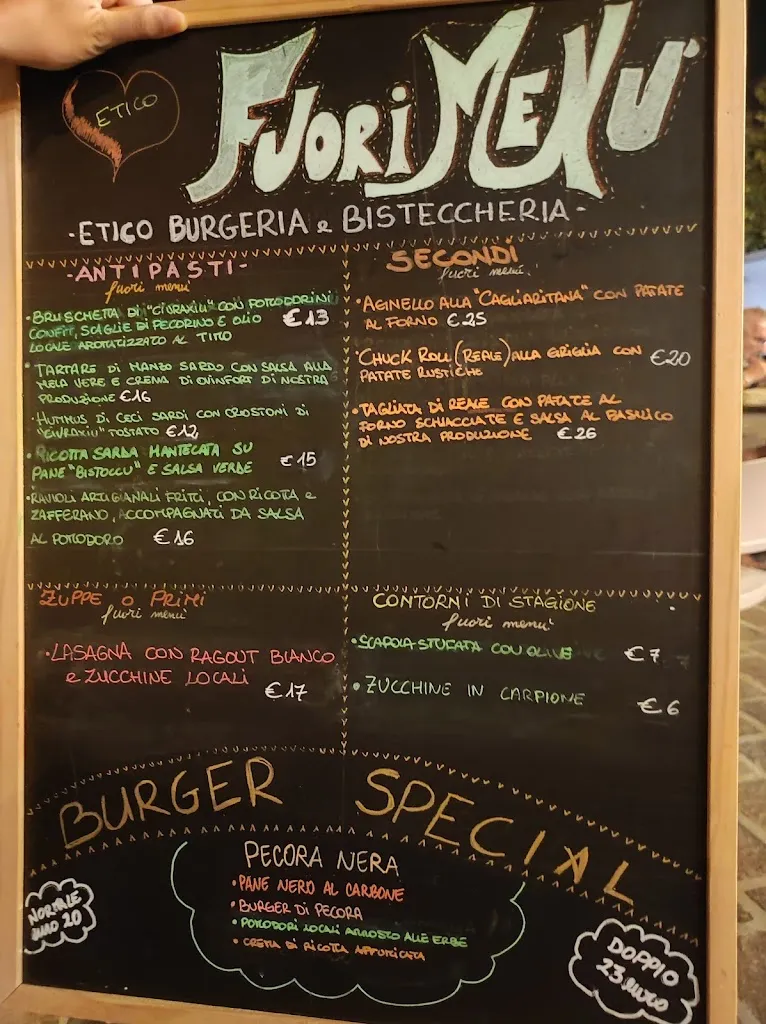 ETICO
FUORI MENU'
-ETICO BURGERIA e BISTECCHERIA-
-ANTIPASTI-
fuori menù
•BRUSCHETTA DI "CIVRAXIU" CON POMODORINI
CONFIT, SCAGLIE DI PECORINO E OLIO €13
LOCALE AROMATIZZATO AL TIMO
•TARTARE DI MANZO SARDO CON SALSA ALLA
MELA VERDE E CREMA DI DI NOSTRA
PRODUZIONE €16
•HUMMUS DI CECI SARDI CON CROSTONI DI
"CIVRAXIU" TOSTATO €12
•RICOTTA SARDA MANTECATA SU
PANE "BISTOCCU" E SALSA VERDE €15
•RAVIOLI ARTIGIANALI FRITTI, CON RICOTTA e
ZAFFERANO, ACCOMPAGNATI DA SALSA
AL POMODORO €16
SECONDI
fuori menù
•AGINELLO ALLA "CAGLIARITANA" CON PATATE
AL FORNO €25
•CHUCK ROLL (REALE) ALLA GRIGLIA CON €20
PATATE RUSTICHE
•TAGLIATA DI REALE CON PATATE AL
FORNO SCHIACCIATE E SALSA AL BASILICO
DI NOSTRA PRODUZIONE €26
ZUPPE O PRIMI
fuori menù
•LASAGNA CON RAGOUT BIANCO
e ZUCCHINE LOCALI €17
CONTORNI DI STAGIONE
fuori menu'
•SCAROLA STUFATA CON OLIVE €7
•ZUCCHINE IN CARPIONE €6
BURGER SPECIAL
PECORA NERA
•PANE NERO AL CARBONE
•BURGER DI PECORA
•POMODORI LOCALI ARROSTO ALLE ERBE
•CREMA DI RICOTTA AFFUMICATA
NORMALE
euro 20
DOPPIO
23 euro